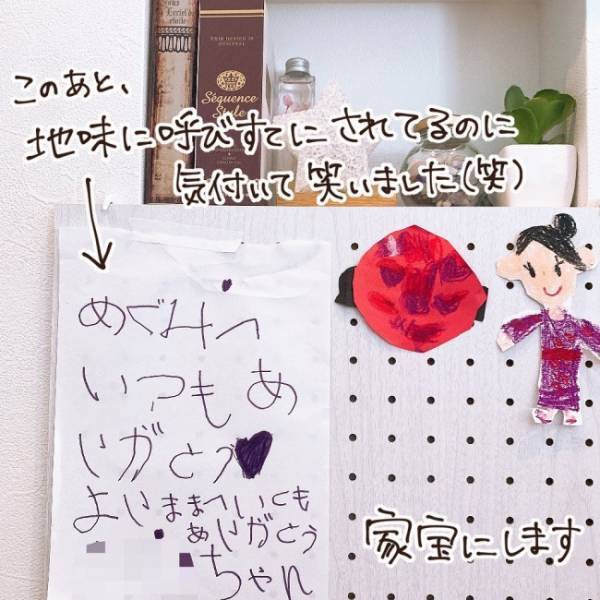 Séquence
Style
このあと、
地味に呼びすてにされてるのに
気付いて笑いました(笑)
めぐみへ
いつもあ
りがとう
よりままへいつも
ありがとう
ちゃん
家宝にします